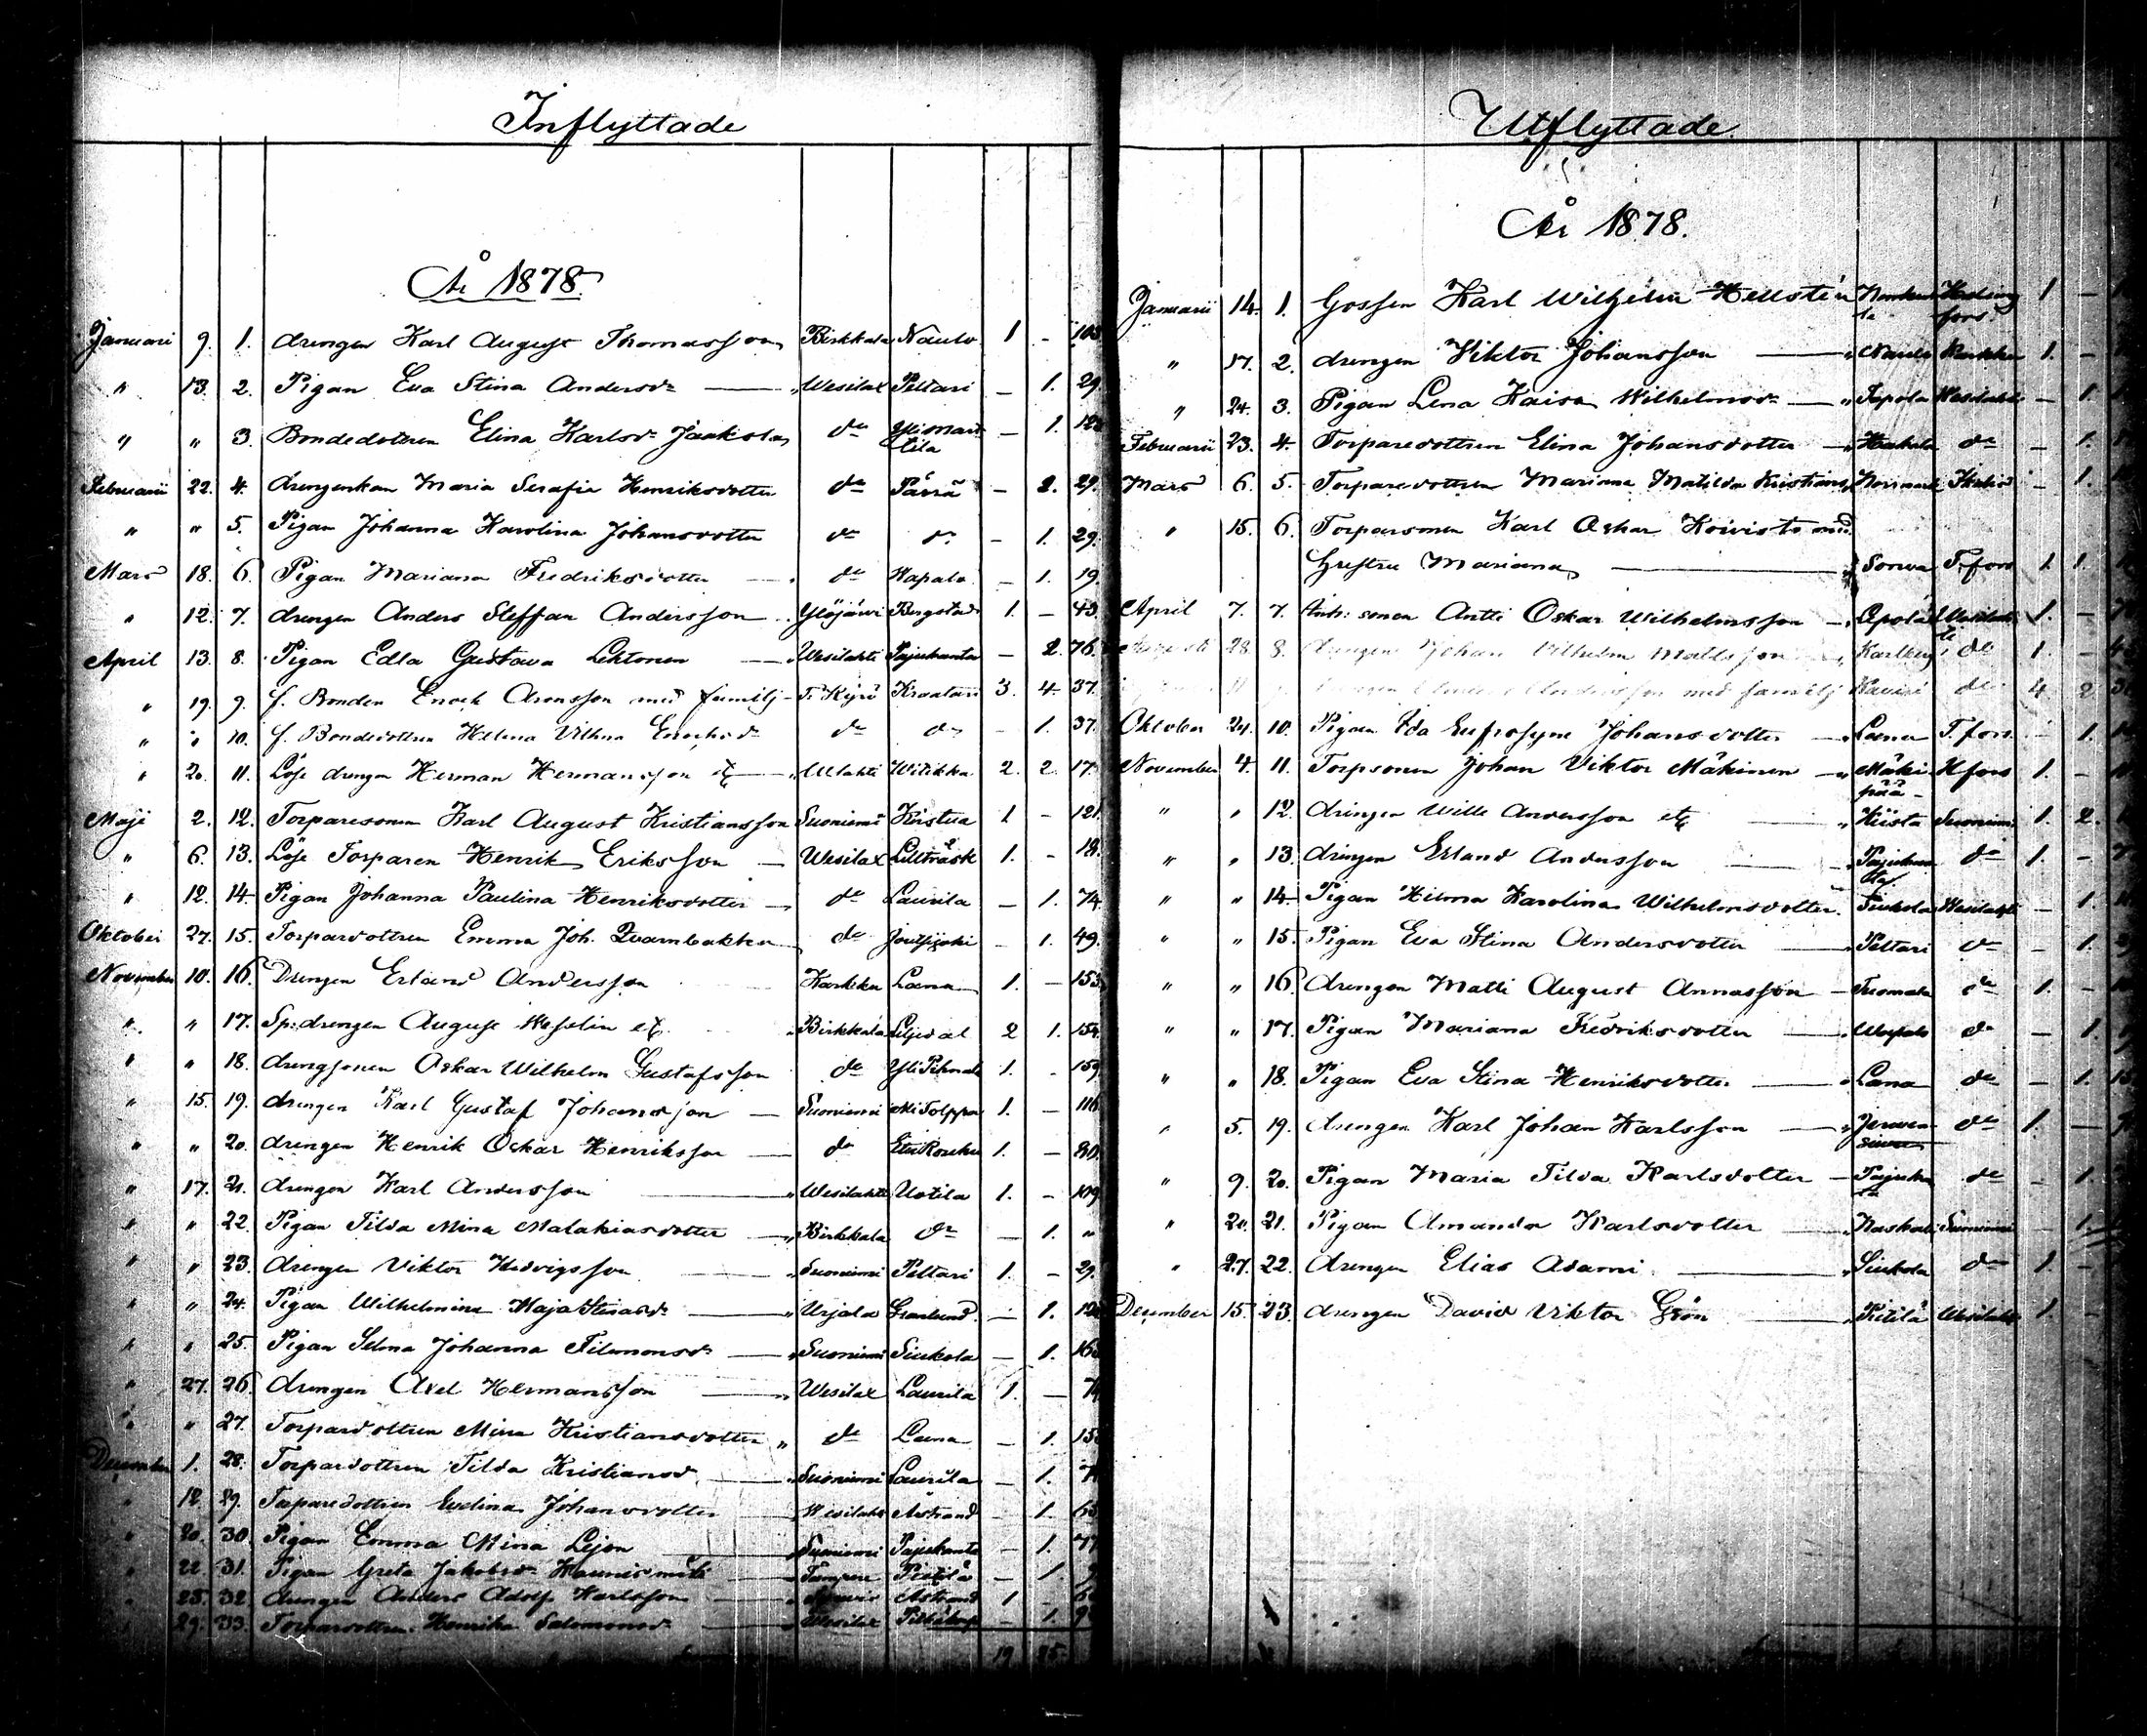 Inflyttade
År 1878.
Januari 9. 1. drengen Karl August Thomasson Birkkala Naulo 1 - 103
" 13. 2. Pigan Eva Stina Andersdr " Wesilax Peltari - 1. 29.
" " 3. Bondedottren Elina Karlsdr Jaakola dr Ylimart - 1.
tila
Februari 22. 4. drengenkan Maria Serafia Henriksdotter dr Pärrä - 2. 29.
" " 5. Pigan Johanna Karolina Johansdotter dr dr - 1. 29.
Mars 18. 6. Pigan Mariana Fredriksdotter dr Hapalo - 1. 19
" 12. 7. drengen Anders Steffan Andersson Ylöjärvi Bergstad 1. - 43.
April 13. 8. Pigan Edla Gustava Lehtonen Wesilahti Pajukanta - 2. 76.
" 19. 9. f. Bonden Enock Aronsson med familj T. Kyrö Kraatari 3. 4. 37.
" " 10. f. Bondedottren Helena Vilhna Enochsdr dr dr - 1. 37.
" 20. 11. Löse drengen Herman Hermansson etc Ulahti Witikka 2. 2. 17.
Maji 2. 12. Torparesonen Karl August Kristiansson Suoniemi Koistua 1 - 121.
" 6. 13. Löse Torparen Henrik Eriksson Wesilax Lillträsk 1. - 18.
" 12. 14. Pigan Johanna Paulina Henriksdotter dr Laurila - 1. 74.
Oktober 27. 15. Torpardottren Emma Joh. Qvarnbakka dr - 1. 49.
November 10. 16. Drengen Erland Andersson Karkku Lana 1. - 153.
" " 17. Sp:drengen August Hesselin etc " Birkkala Liljedal 2 1. 154.
" " 18. drengsonen Oskar Wilhelm Gustafsson dr Yli Pihnala 1. - 159.
" 15. 19. drengen Karl Gustaf Johansson Suoniemi Ali Tolppa 1. - 116.
" " 20. drengen Henrik Oskar Henriksson dr 1. - 80.
" 17. 21. drengen Karl Andersson " Wesilahti Uotila 1. - 109
" " 22. Pigan Tilda Mina Malakiasdotter " Birkkala dr - 1. "
" " 23. drengen Viktor Hedvigsson " Suoniemi Peltari 1. - 29.
" " 24. Pigan Wilhelmina Kaja Stinasdr " Urjala Granlund - 1.
" " 25. Pigan Selma Johanna Filemonsdr " Suoniemi Siukola - 1. 163
" 27. 26. drengen Axel Hermansson " Wesilax Laurila 1. - 74
" " 27. Torpardottren Mina Kristiansdotter " dr Lana - 1. 153
December 1. 28. Torpardottren Tilda Kristiansd " Suoniemi Laurila - 1.
" 12. 29. Torparedottren Evelina Johansdotter " Wesilahti Åstrand - 1. 63
" 20. 30. Pigan Emma Mina Lejon Suoniemi Pajukanta - 1. 77
" 22 31. Pigan Greta Jakobsdr Kaunismäki Tampere Pietilä - 1
" 25. 32. drengen Anders Adolf Karlsson Åstrand 1 -
" 29. 33. Torpardottren Henrika Salomonsdr Wesilax - 1.
19 35.
Utflyttade
År 1878.
Januarii 14. 1. Gossen Karl Wilhelm Hellstén Helsing 1 -
fors
" 17. 2. drengen Viktor Johansson " Naulo Karkku 1. -
" 24. 3. Pigan Lena Kaisa Wilhelmsdr " Tepola Wesilahti - 1.
Februarii 23. 4. Torparedottren Elina Johansdotter " Hakala dr - 1.
Mars 6. 5. Torparedottren Mariana Matilda Kristiansd - 1.
" 15. 6. Torparsonen Karl Oskar Koivisto med
hustru Mariana " Sorwa T.fors 1. 1.
April 7. 7. Inh: sonen Antti Oskar Wilhelmsson Apola Wesilah 1. -
ti
Augusti 28. 8. drengen Johan Vilhelm Mattsson Karlberg dr 1. -
med familj dr 4 2
Oktober 24. 10. Pigan Ida Eufrosyne Johansdotter " Lana T.fors - 1.
November 4. 11. Torpsonen Johan Viktor Mäkinen " Mäki H.fors 1. -
pää
" " 12. drengen Wille Andersson etc " Hiista Suoniemi 1. 2.
" " 13. drengen Erland Andersson " Pajukan dr 1. -
ta
" " 14. Pigan Hilma Karolina Wilhelmsdotter Siukola Wesilahti - 1.
" " 15. Pigan Eva Stina Andersdotter " Peltari dr - 1.
" " 16. drengen Matti August Annasson Tuomala dr 1. -
" " 17. Pigan Mariana Fredriksdotter " dr - 1.
" " 18. Pigan Eva Stina Henriksdotter " Lana dr - 1.
" 5. 19. drengen Karl Johan Karlsson " Jerwen dr 1. -
" 9. 20. Pigan Maria Tilda Karlsdotter Pajukan dr - 1.
ta
" 20. 21. Pigan Amanda Karlsdotter " Suoniemi - 1.
" 27. 22. drengen Elias Adami " Siukola dr 1 -
December 15. 23. drengen David Viktor Grön " Pietilä Wesilahti 1. -